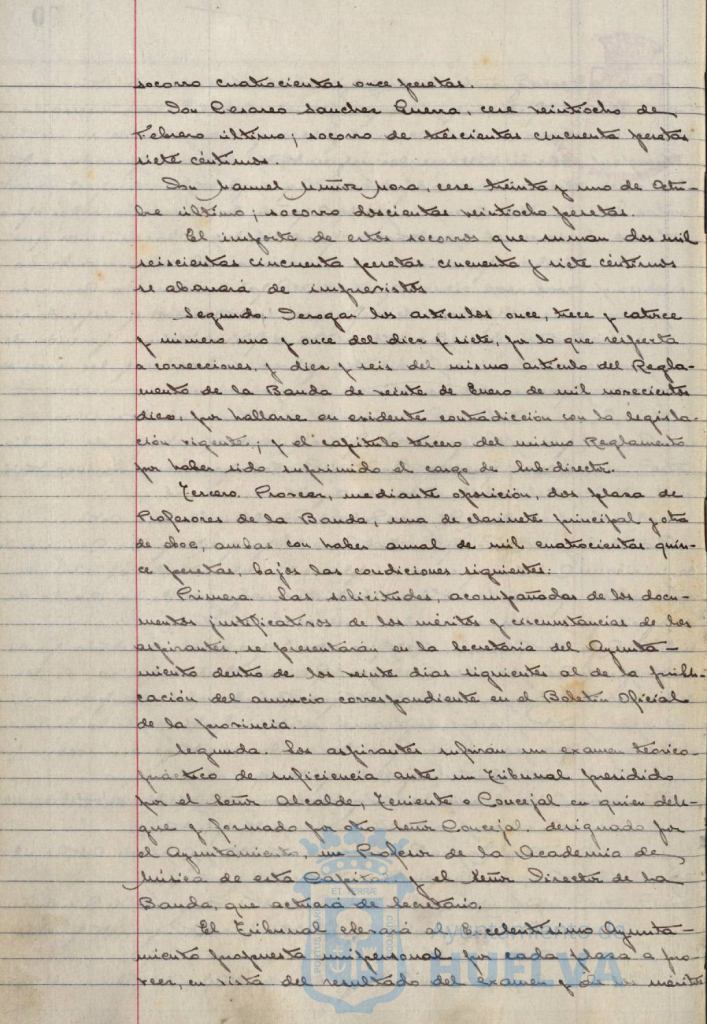 socorro cuatrocientas once pesetas.
Don Cesareo Sanchez Guerra, cese veintiocho de
Febrero último; socorro de trescientas cincuenta pesetas
siete céntimos.
Don Manuel Muñoz Mora, cese treinta y uno de Octu-
bre último; socorro doscientas veintiocho pesetas.
El importe de estos socorros que suman dos mil
seiscientas cincuenta pesetas cincuenta y siete céntimos
se abonará de imprevistos
Segundo. Derogar los artículos once, trece y catorce
y número uno y once del diez y siete, por lo que respecta
a correcciones, y diez y seis del mismo artículo del Regla-
mento de la Banda de veinte de Enero de mil novecientos
diez, por hallarse en evidente contradicción con la legisla-
ción vigente; y el capítulo tercero del mismo Reglamento
por haber sido suprimido el cargo de Sub-director.
Tercero. Proveer, mediante oposición, dos plaza de
Profesores de la Banda, una de clarinete principal y otra
de oboe, ambas con haber anual de mil cuatrocientas quin-
ce pesetas, bajos las condiciones siguientes:
Primera. Las solicitudes, acompañadas de los docu-
mentos justificativos de los méritos y circunstancias de los
aspirantes, se presentarán en la Secretaria del Ayunta-
miento dentro de los veinte dias siguientes al de la publi-
cación del anuncio correspondiente en el Boletín Oficial
de la provincia.
Segunda. Los aspirantes sufrirán un examen teórico-
práctico de suficiencia ante un Tribunal presidido
por el Señor Alcalde, Teniente o Concejal en quien dele-
gue y formado por otro Señor Concejal, designado por
el Ayuntamiento, un Profesor de la Academia de
Música de esta Capital y el Señor Director de la
Banda, que actuará de Secretario.
El Tribunal elevará al Excelentísimo Ayunta-
miento propuesta unipersonal por cada plaza a pro-
veer, en vista del resultado del examen y de los méritos
HUELVA